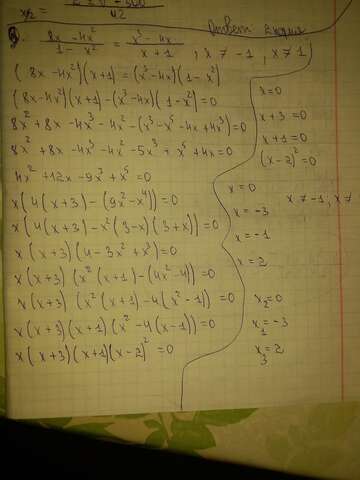 x₁/₂ =
42
Ответ:
3. (8x - 4x²)/(1 - x²) = (x³ - 4x)/(x + 1) ; x ≠ -1, x ≠ 1
(8x - 4x²)(x+1) = (x³ - 4x)(1 - x²)
(8x - 4x²)(x+1) - (x³ - 4x)(1 - x²) = 0
8x² + 8x - 4x³ - 4x² - (x³ - x⁵ - 4x + 4x³) = 0
8x² + 8x - 4x³ - 4x² - 5x³ + x⁵ + 4x = 0
4x² + 12x - 9x³ + x⁵ = 0
x(4(x+3) - (9x² - x⁴)) = 0
x(4(x+3) - x²(3-x)(3+x)) = 0
x(x+3)(4 - 3x² + x³) = 0
x(x+3)(x²(x+1) - (4x² - 4)) = 0
x(x+3)(x²(x+1) - 4(x² - 1)) = 0
x(x+3)(x+1)(x² - 4(x-1)) = 0
x(x+3)(x+1)(x-2)² = 0
x = 0
x + 3 = 0
x + 1 = 0
(x-2)² = 0
x = 0
x = -3
x = -1
x = 2
x ≠ -1, x ≠
x₂ = 0
x₁ = -3
x₃ = 2